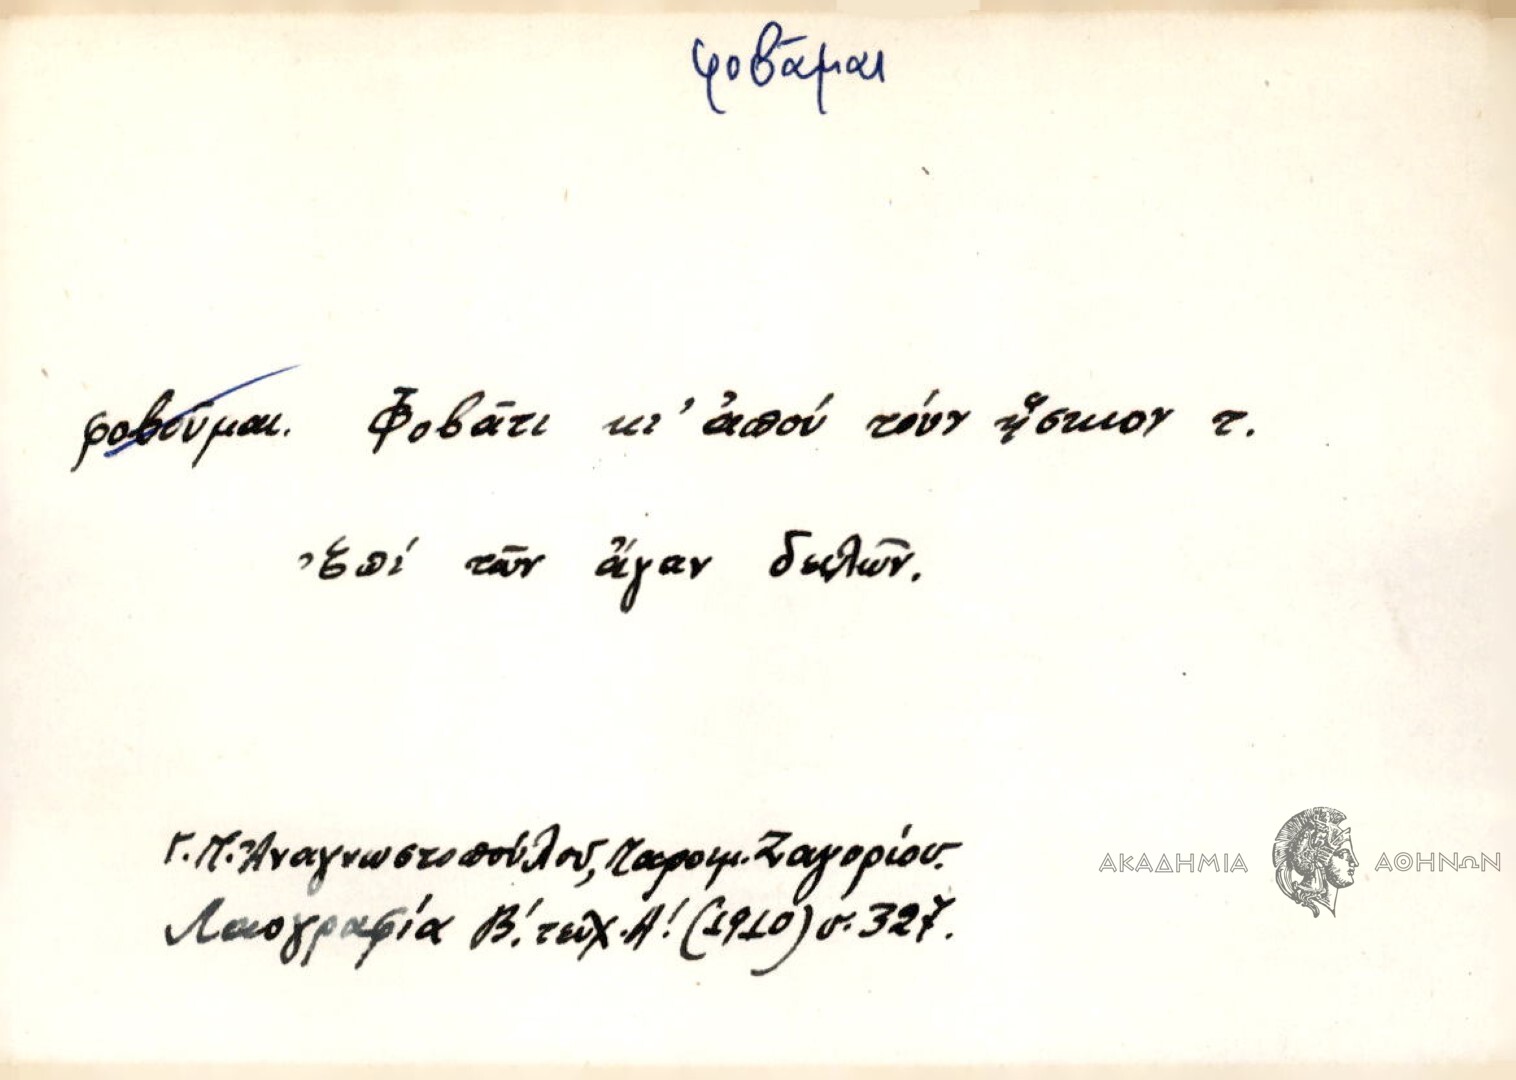 φοβᾶμαι
φοβοῦμαι. Φοβᾶτι κι' ἀπού τόυν ἥσκιον τ.
Ἐπί τῶν ἄγαν δειλῶν.
Γ. Π. Ἀναγνωστοπούλου, Παροιμ. Ζαγορίου.
Λαογραφία Β΄. τεῦχ. Α΄. (1910) σ. 327.
ΑΚΑΔΗΜΙΑ ΑΘΗΝΩΝ